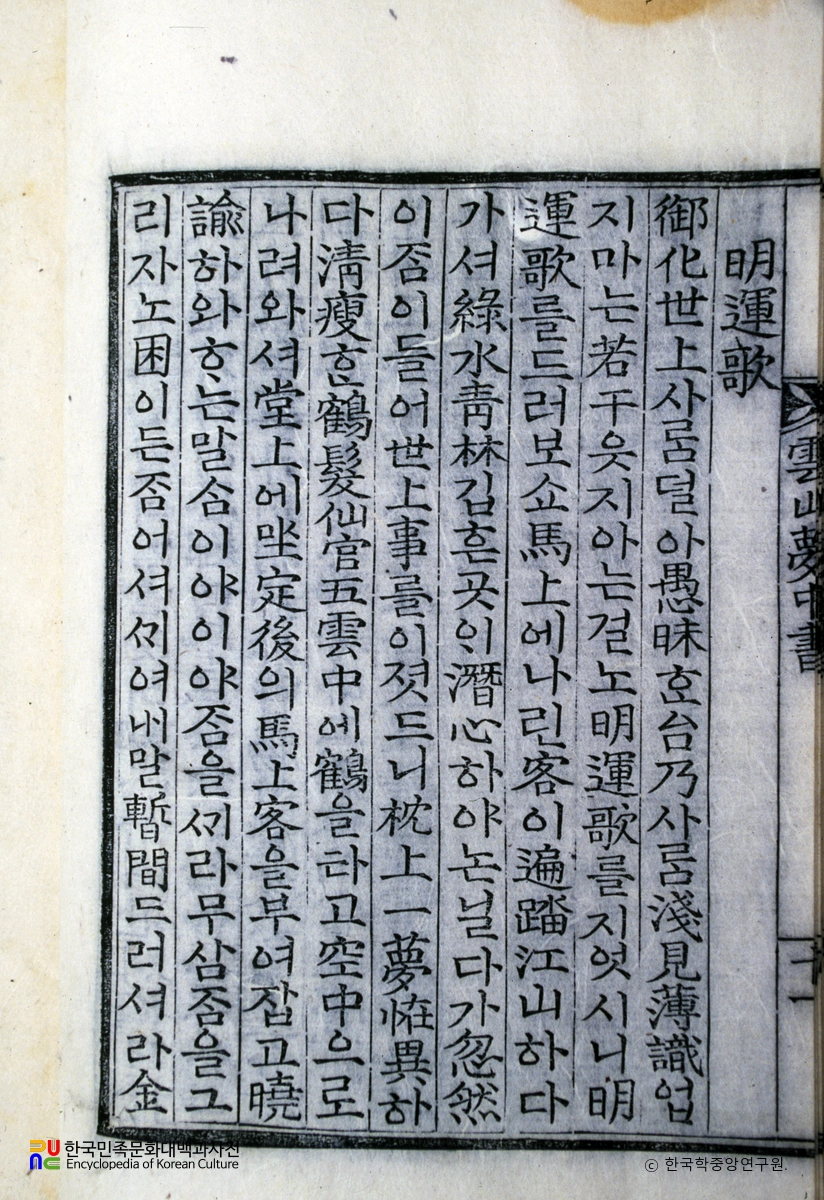 雲山夢中書
十一
明運歌
御化世上사ᄅᆞᆷ덜아愚昧ᄒᆞᆫ台乃사ᄅᆞᆷ淺見薄識업
지마는若干웃지아는걸노明運歌를지엿시니明
運歌를드러보쇼馬上에나린客이遍踏江山하다
가셔綠水靑林김흔곳ᄋᆡ潛心하야논닐다가忽然
이ᄌᆞᆷ이들어世上事를이졋드니枕上一夢恠異하
다淸瘦ᄒᆞᆫ鶴髮仙官五雲中에鶴을타고空中으로
나려와셔堂上에坐定後의馬上客을부여잡고曉
諭하와ᄒᆞ는말ᄉᆞᆷ이야이야ᄌᆞᆷ을ᄭᆡ라무삼ᄌᆞᆷ을그
리자노困이든ᄌᆞᆷ어셔ᄭᆡ여ᄂᆡ말暫間드러셔라金
한국민족문화대백과사전
Encyclopedia of Korean Culture
ⓒ 한국학중앙연구원.